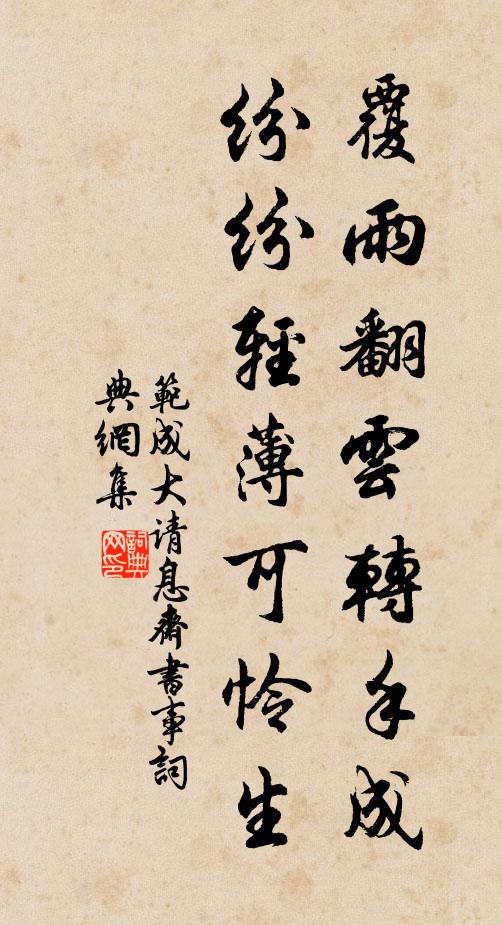 覆雨翻雲轉手成
紛紛輕薄可怜生
範成大请息齋書事詞
典網集
詞典
网印